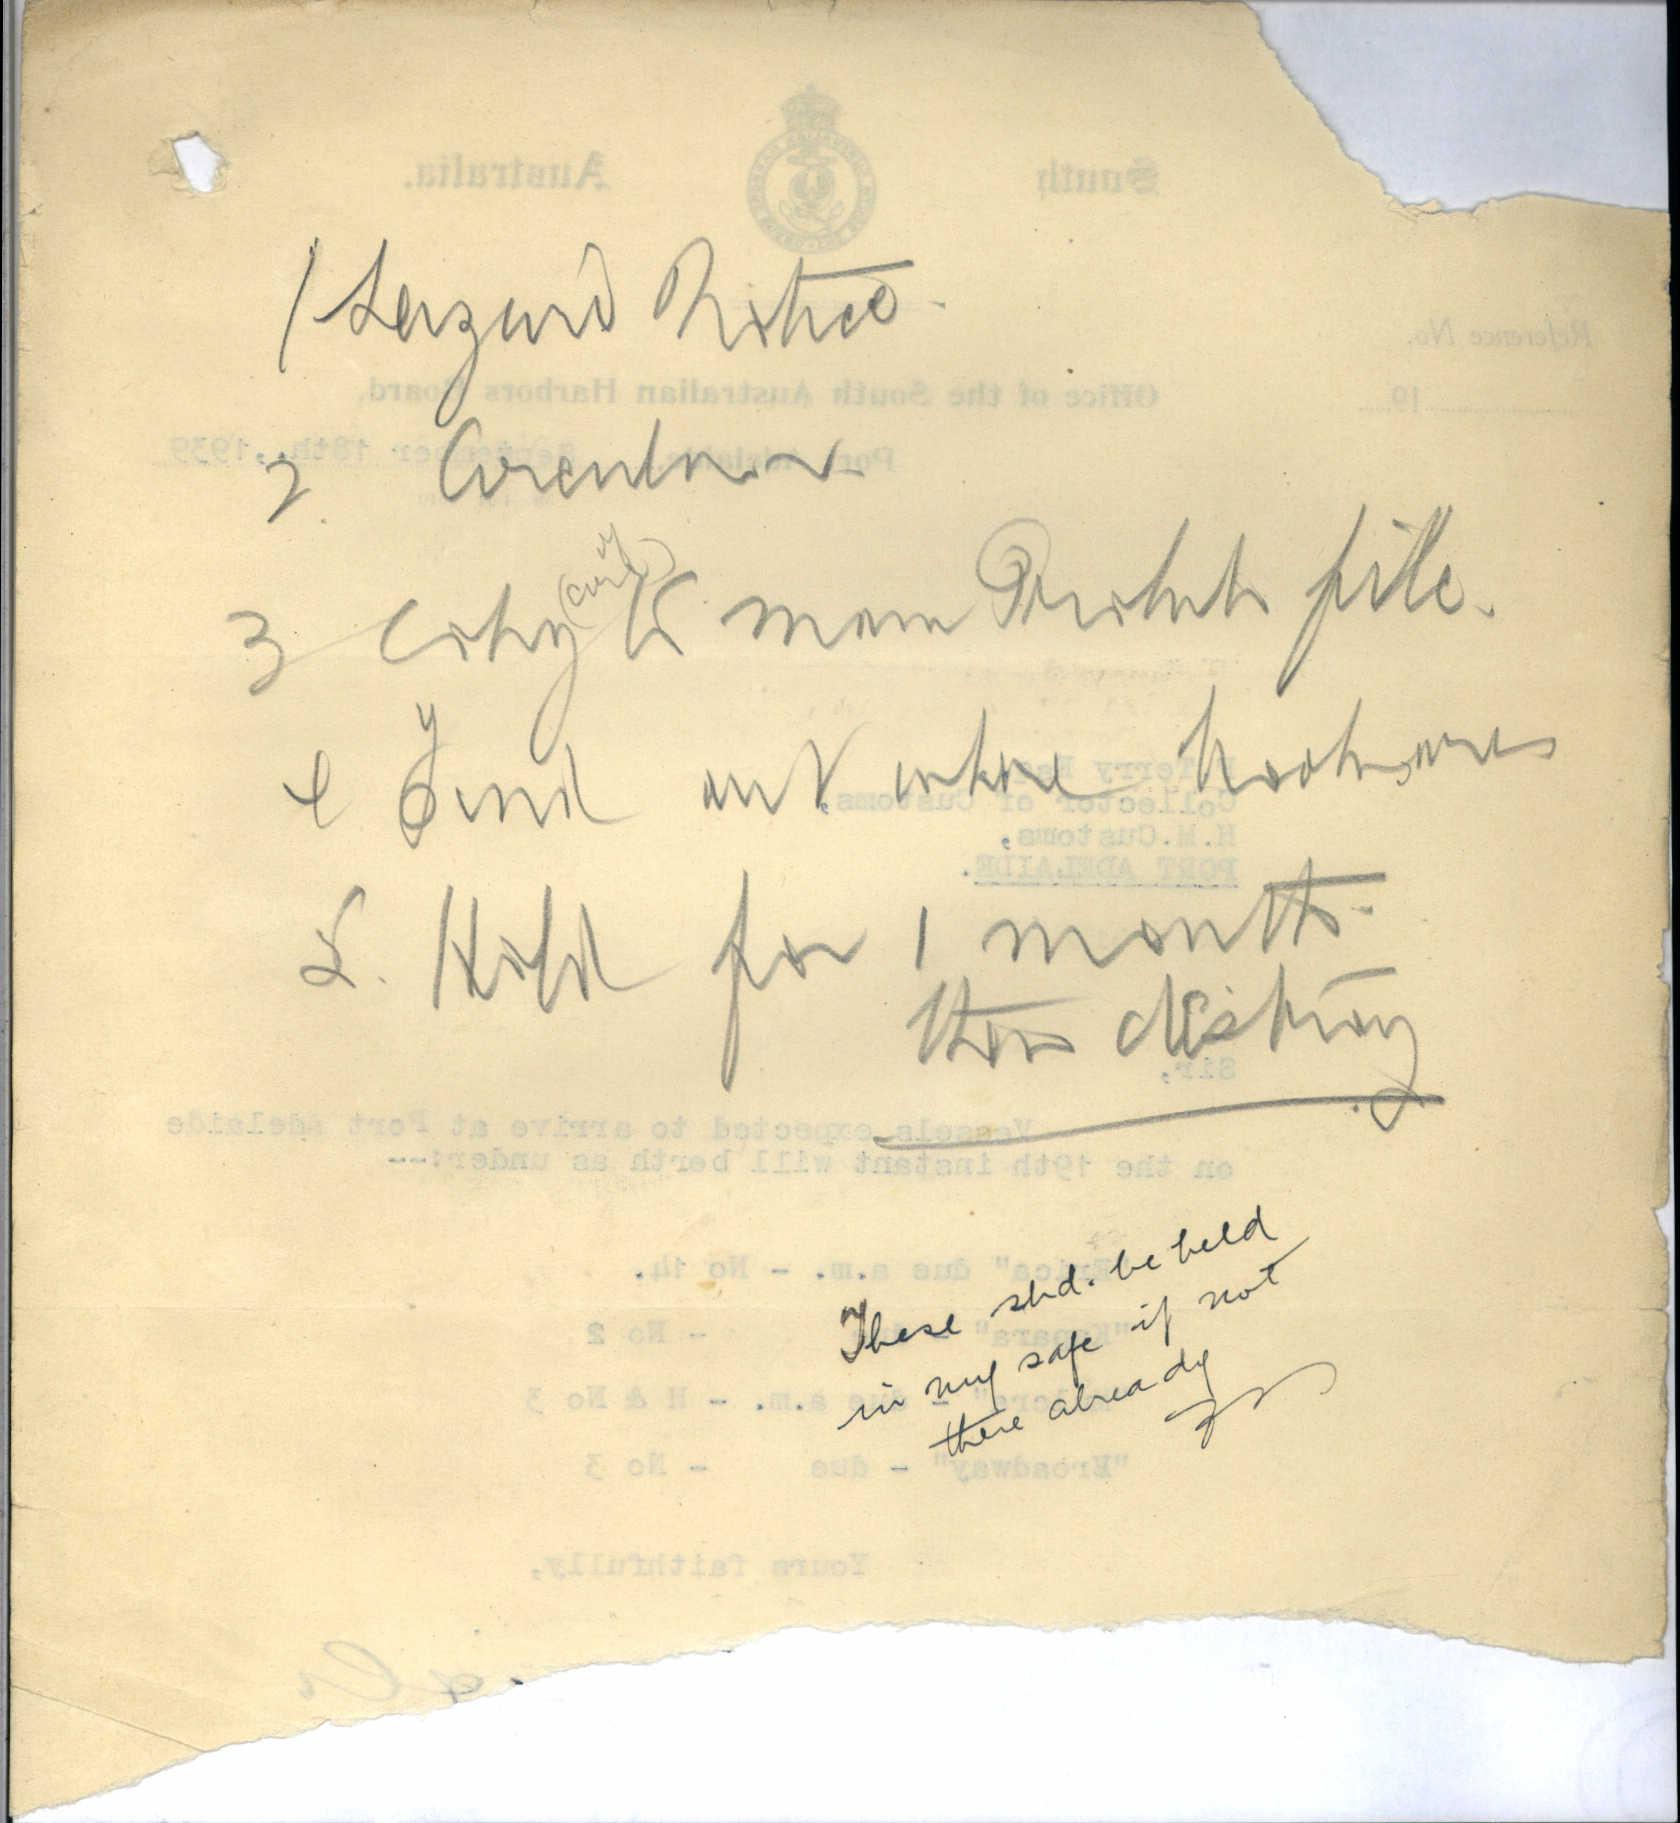 1 Seizure Notice.
2 Circular
3 Copy (cov) to main Prohib file.
4 Find out where books are
5. Hold for 1 month.
then destroy
These shd. be held
in my safe if not
there already
South Australia.
Reference No.
19
Office of the South Australian Harbors Board,
Port Adelaide, September 18th, 1939
Collector of Customs,
H.M.Customs,
PORT ADELAIDE.
Sir,
Vessels expected to arrive at Port Adelaide
on the 19th instant will berth as under:--
"Erica" due a.m. - No 14.
- No 2
a.m. - H & No 3
"Broadway" - due - No 3
Yours faithfully,